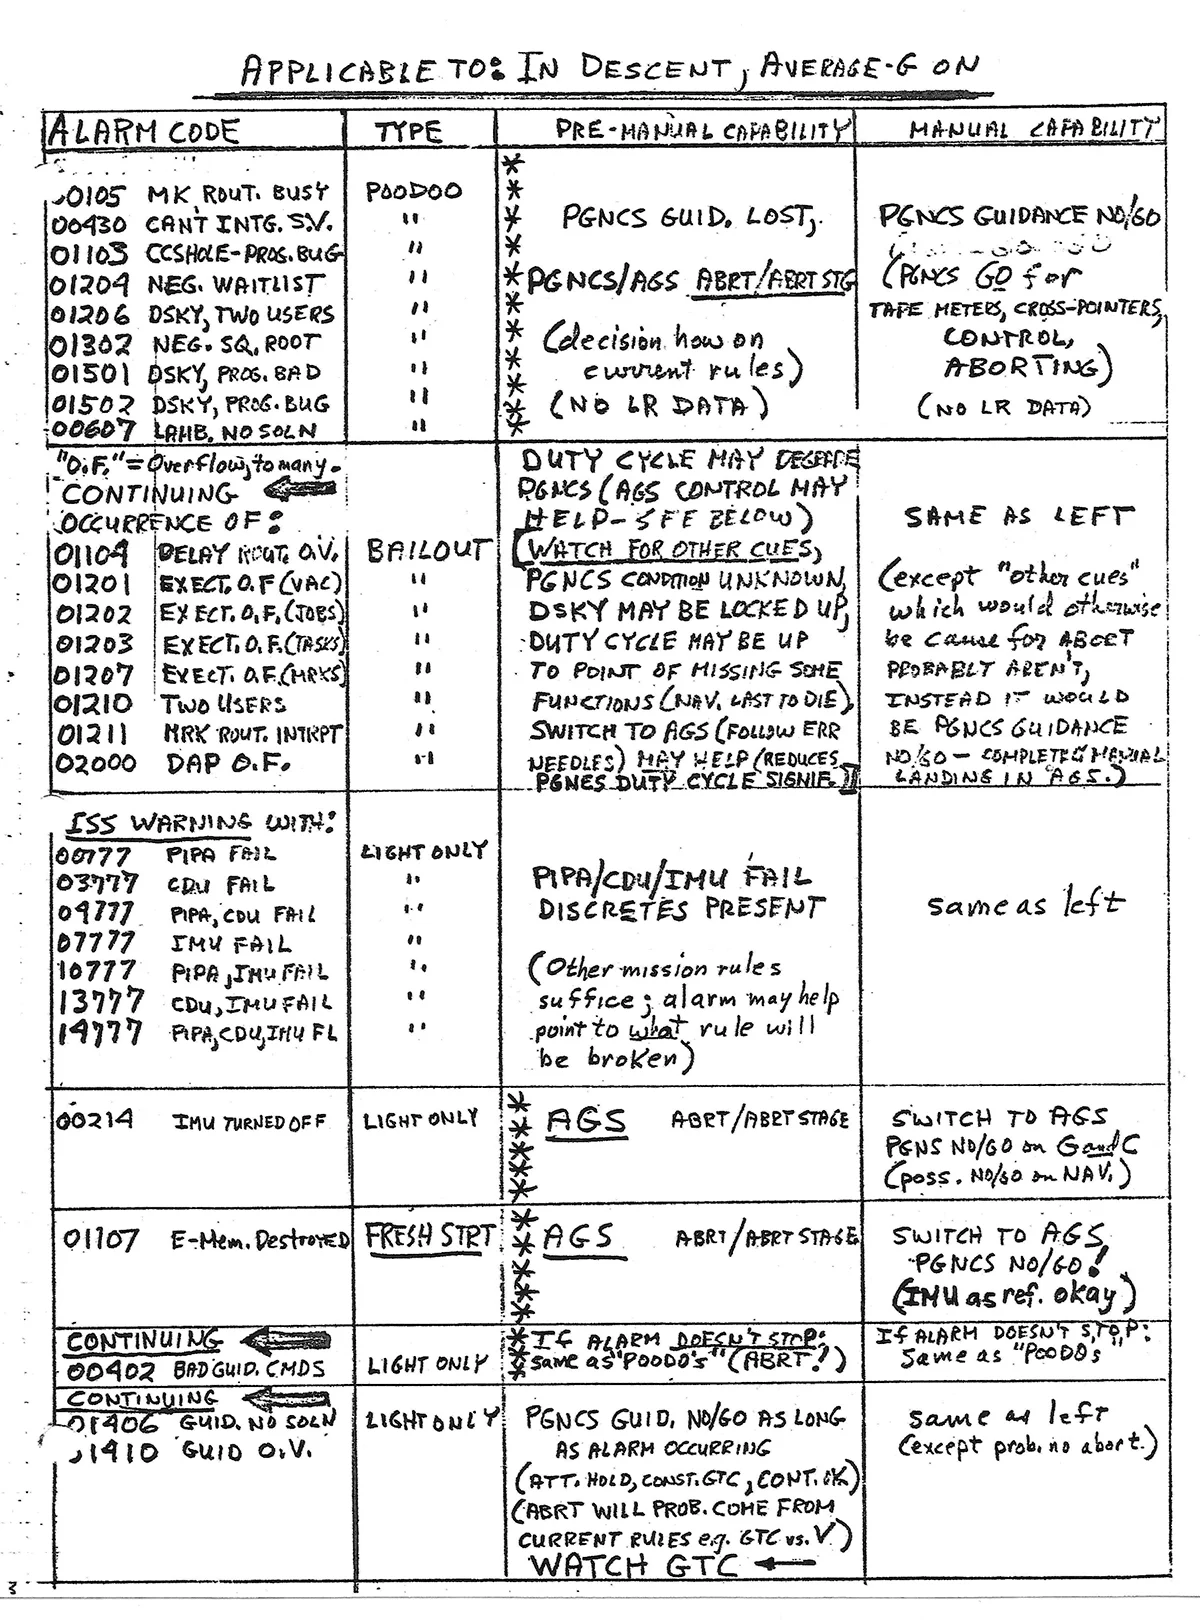 APPLICABLE TO: IN DESCENT, AVERAGE-G ON
ALARM CODE TYPE PRE-MANUAL CAPABILITY MANUAL CAPABILITY
00105 MK ROUT. BUSY POODOO
00430 CAN'T INTG. S.V. "
01103 CCSHOLE-PROG. BUG "
01204 NEG. WAITLIST "
01206 DSKY, TWO USERS "
01302 NEG. SQ. ROOT "
01501 DSKY, PROG. BAD "
01502 DSKY, PROG. BUG "
00607 LAMB. NO SOLN "
* * * * * * * * * *
PGNCS GUID. LOST,
PGNCS/AGS ABRT/ABRT STG
(decision how on
current rules)
(NO LR DATA)
PGNCS GUIDANCE NO/GO
(PGNCS GO for
TAPE METERS, CROSS-POINTERS,
CONTROL,
ABORTING)
(NO LR DATA)
"O.F."=Overflow, to many.
CONTINUING
OCCURRENCE OF:
01104 DELAY ROUT. O.V. BAILOUT
01201 EXECT. O.F (VAC) "
01202 EXECT. O.F. (JOBS) "
01203 EXECT. O.F. (TASKS) "
01207 EXECT. O.F. (MRKS) "
01210 TWO USERS "
01211 MRK ROUT. INTRPT "
02000 DAP O.F. "
DUTY CYCLE MAY DEGRADE
PGNCS (AGS CONTROL MAY
HELP-SEE BELOW)
(WATCH FOR OTHER CUES,
PGNCS CONDITION UNKNOWN,
DSKY MAY BE LOCKED UP,
DUTY CYCLE MAY BE UP
TO POINT OF MISSING SOME
FUNCTIONS (NAV. LAST TO DIE),
SWITCH TO AGS (FOLLOW ERR
NEEDLES) MAY HELP (REDUCES
PGNCS DUTY CYCLE SIGNIF.))
SAME AS LEFT
(except "other cues"
which would otherwise
be cause for ABORT
PROBABLY AREN'T,
INSTEAD IT WOULD
BE PGNCS GUIDANCE
NO/GO - COMPLETE MANUAL
LANDING IN AGS.)
ISS WARNING WITH:
00777 PIPA FAIL LIGHT ONLY
03777 CDU FAIL "
04777 PIPA, CDU FAIL "
07777 IMU FAIL "
10777 PIPA, IMU FAIL "
13777 CDU, IMU FAIL "
14777 PIPA, CDU, IMU FL "
PIPA/CDU/IMU FAIL
DISCRETES PRESENT
(Other mission rules
suffice; alarm may help
point to what rule will
be broken)
same as left
00214 IMU TURNED OFF LIGHT ONLY
* * * * *
AGS ABRT/ABRT STAGE
SWITCH TO AGS
PGNS NO/GO on G and C
(poss. NO/GO on NAV.)
01107 E-Mem. Destroyed FRESH STRT
* * * * *
AGS ABRT/ABRT STAGE
SWITCH TO AGS
PGNCS NO/GO!
(IMU as ref. okay)
CONTINUING
00402 BAD GUID. CMDS LIGHT ONLY
* *
If ALARM DOESN'T STOP:
same as "POODO's" (ABRT!)
If ALARM DOESN'T STOP:
Same as "POODOs"
CONTINUING
01406 GUID. NO SOLN LIGHT ONLY
01410 GUID O.V.
PGNCS GUID. NO/GO AS LONG
AS ALARM OCCURRING
(ATT. HOLD, CONST. GTC, CONT. OK)
(ABRT WILL PROB. COME FROM
CURRENT RULES e.g. GTC vs. V)
WATCH GTC
same as left
(except prob. no abort.)
3